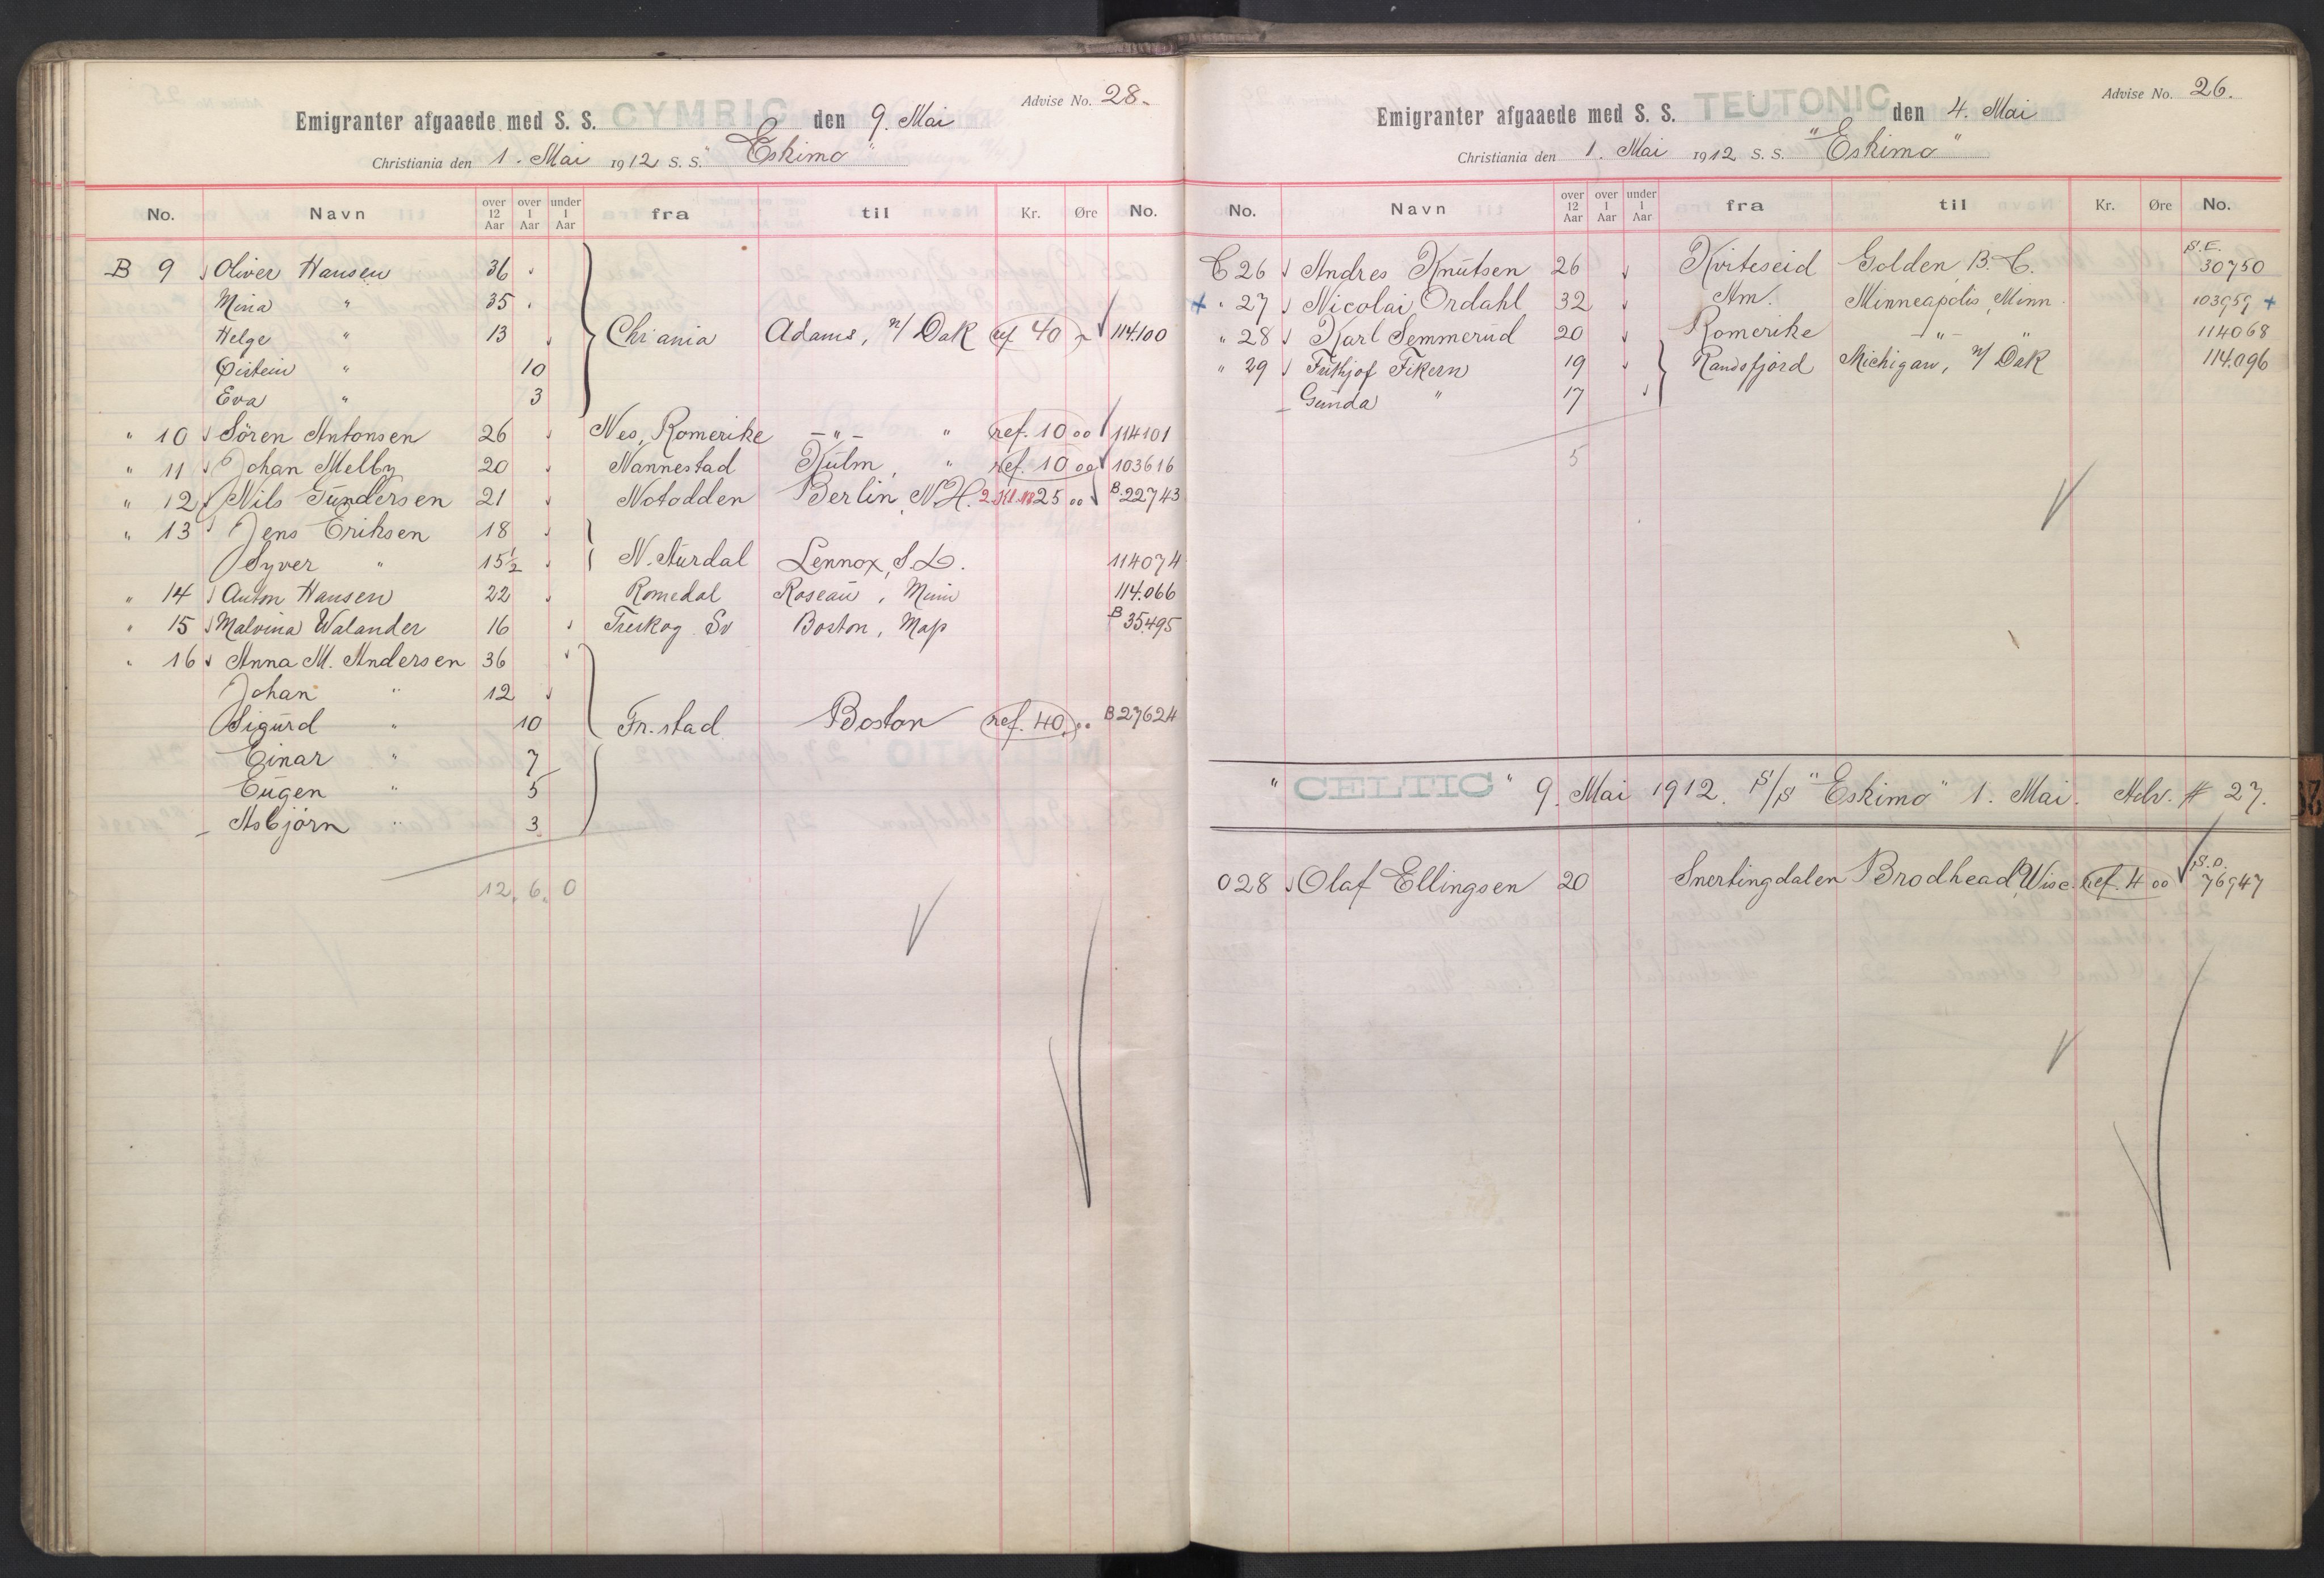 Advise No. 28.
Emigranter afgaaede med S. S. CYMRIC den 9. Mai
Christiania den 1. Mai 1912 S. S. "Eskimo"
No. Navn over 12 Aar over 1 Aar under 1 Aar fra til Kr. Øre No.
B 9 Oliver Hansen 36
Mina " 35
Helge " 13 Chr ania Adams, N/ Dak ref 40 114.100
Øistein " 10
Eva " 3
" 10 Sören Antonsen 26 Nes, Romerike -"- " ref. 10 00 114101
" 11 Johan Melby 20 Nannestad Kulm, " ref. 10 00 103616
" 12 Nils Gundersen 21 Notodden Berlin, N.H. 2 Kl. 25 00 B 22743
" 13 Jens Eriksen 18
Syver " 15 1/2 N. Aurdal Lennox, S.D. 114074
" 14 Anton Hansen 22 Romedal Roseau, Minn 114.066
" 15 Malvina Walander 16 Sv Boston, Mass B 35495
" 16 Anna M. Andersen 36
Johan " 12
Sigurd " 10 Fr.stad Boston ref. 40 B 27624
Einar " 7
Eugen " 5
Asbjörn " 3
12. 6. 0
Advise No. 26.
Emigranter afgaaede med S. S. TEUTONIC den 4. Mai
Christiania den 1. Mai 1912 S. S. "Eskimo"
No. Navn over 12 Aar over 1 Aar under 1 Aar fra til Kr. Øre No.
C 26 Andres Knutsen 26 Kviteseid Golden B. C. S.E. 30750
+ " 27 Nicolai Ordahl 32 Am. Minneapolis, Minn 103959 +
" 28 Karl Semmerud 20 Romerike -"- " 114068
" 29 Frithjof Fikern 19 Randsfjord Michigan, N/ Dak 114.096
Gunda " 17
5
" CELTIC " 9. Mai 1912. S/S "Eskimo" 1. Mai. Adv. # 27.
028 Olaf Ellingsen 20 Snertingdalen Brodhead, Wisc. ref. 4 00 S.D. 76947